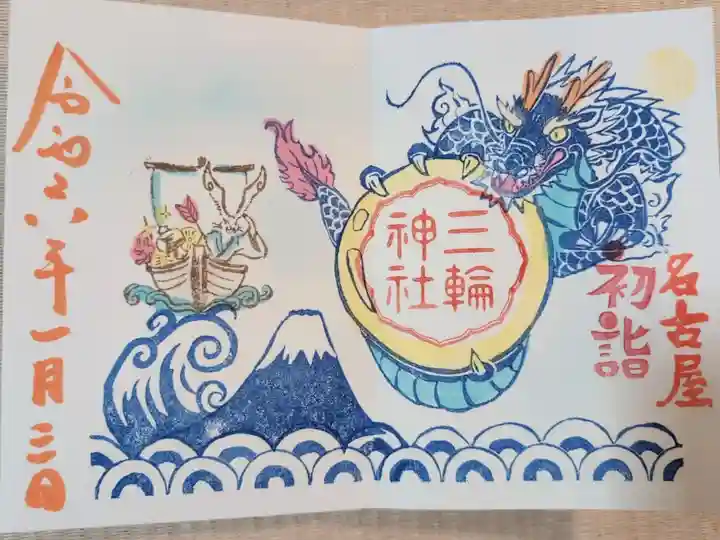 名古屋
初詣
三輪
神社
令和六年一月三日